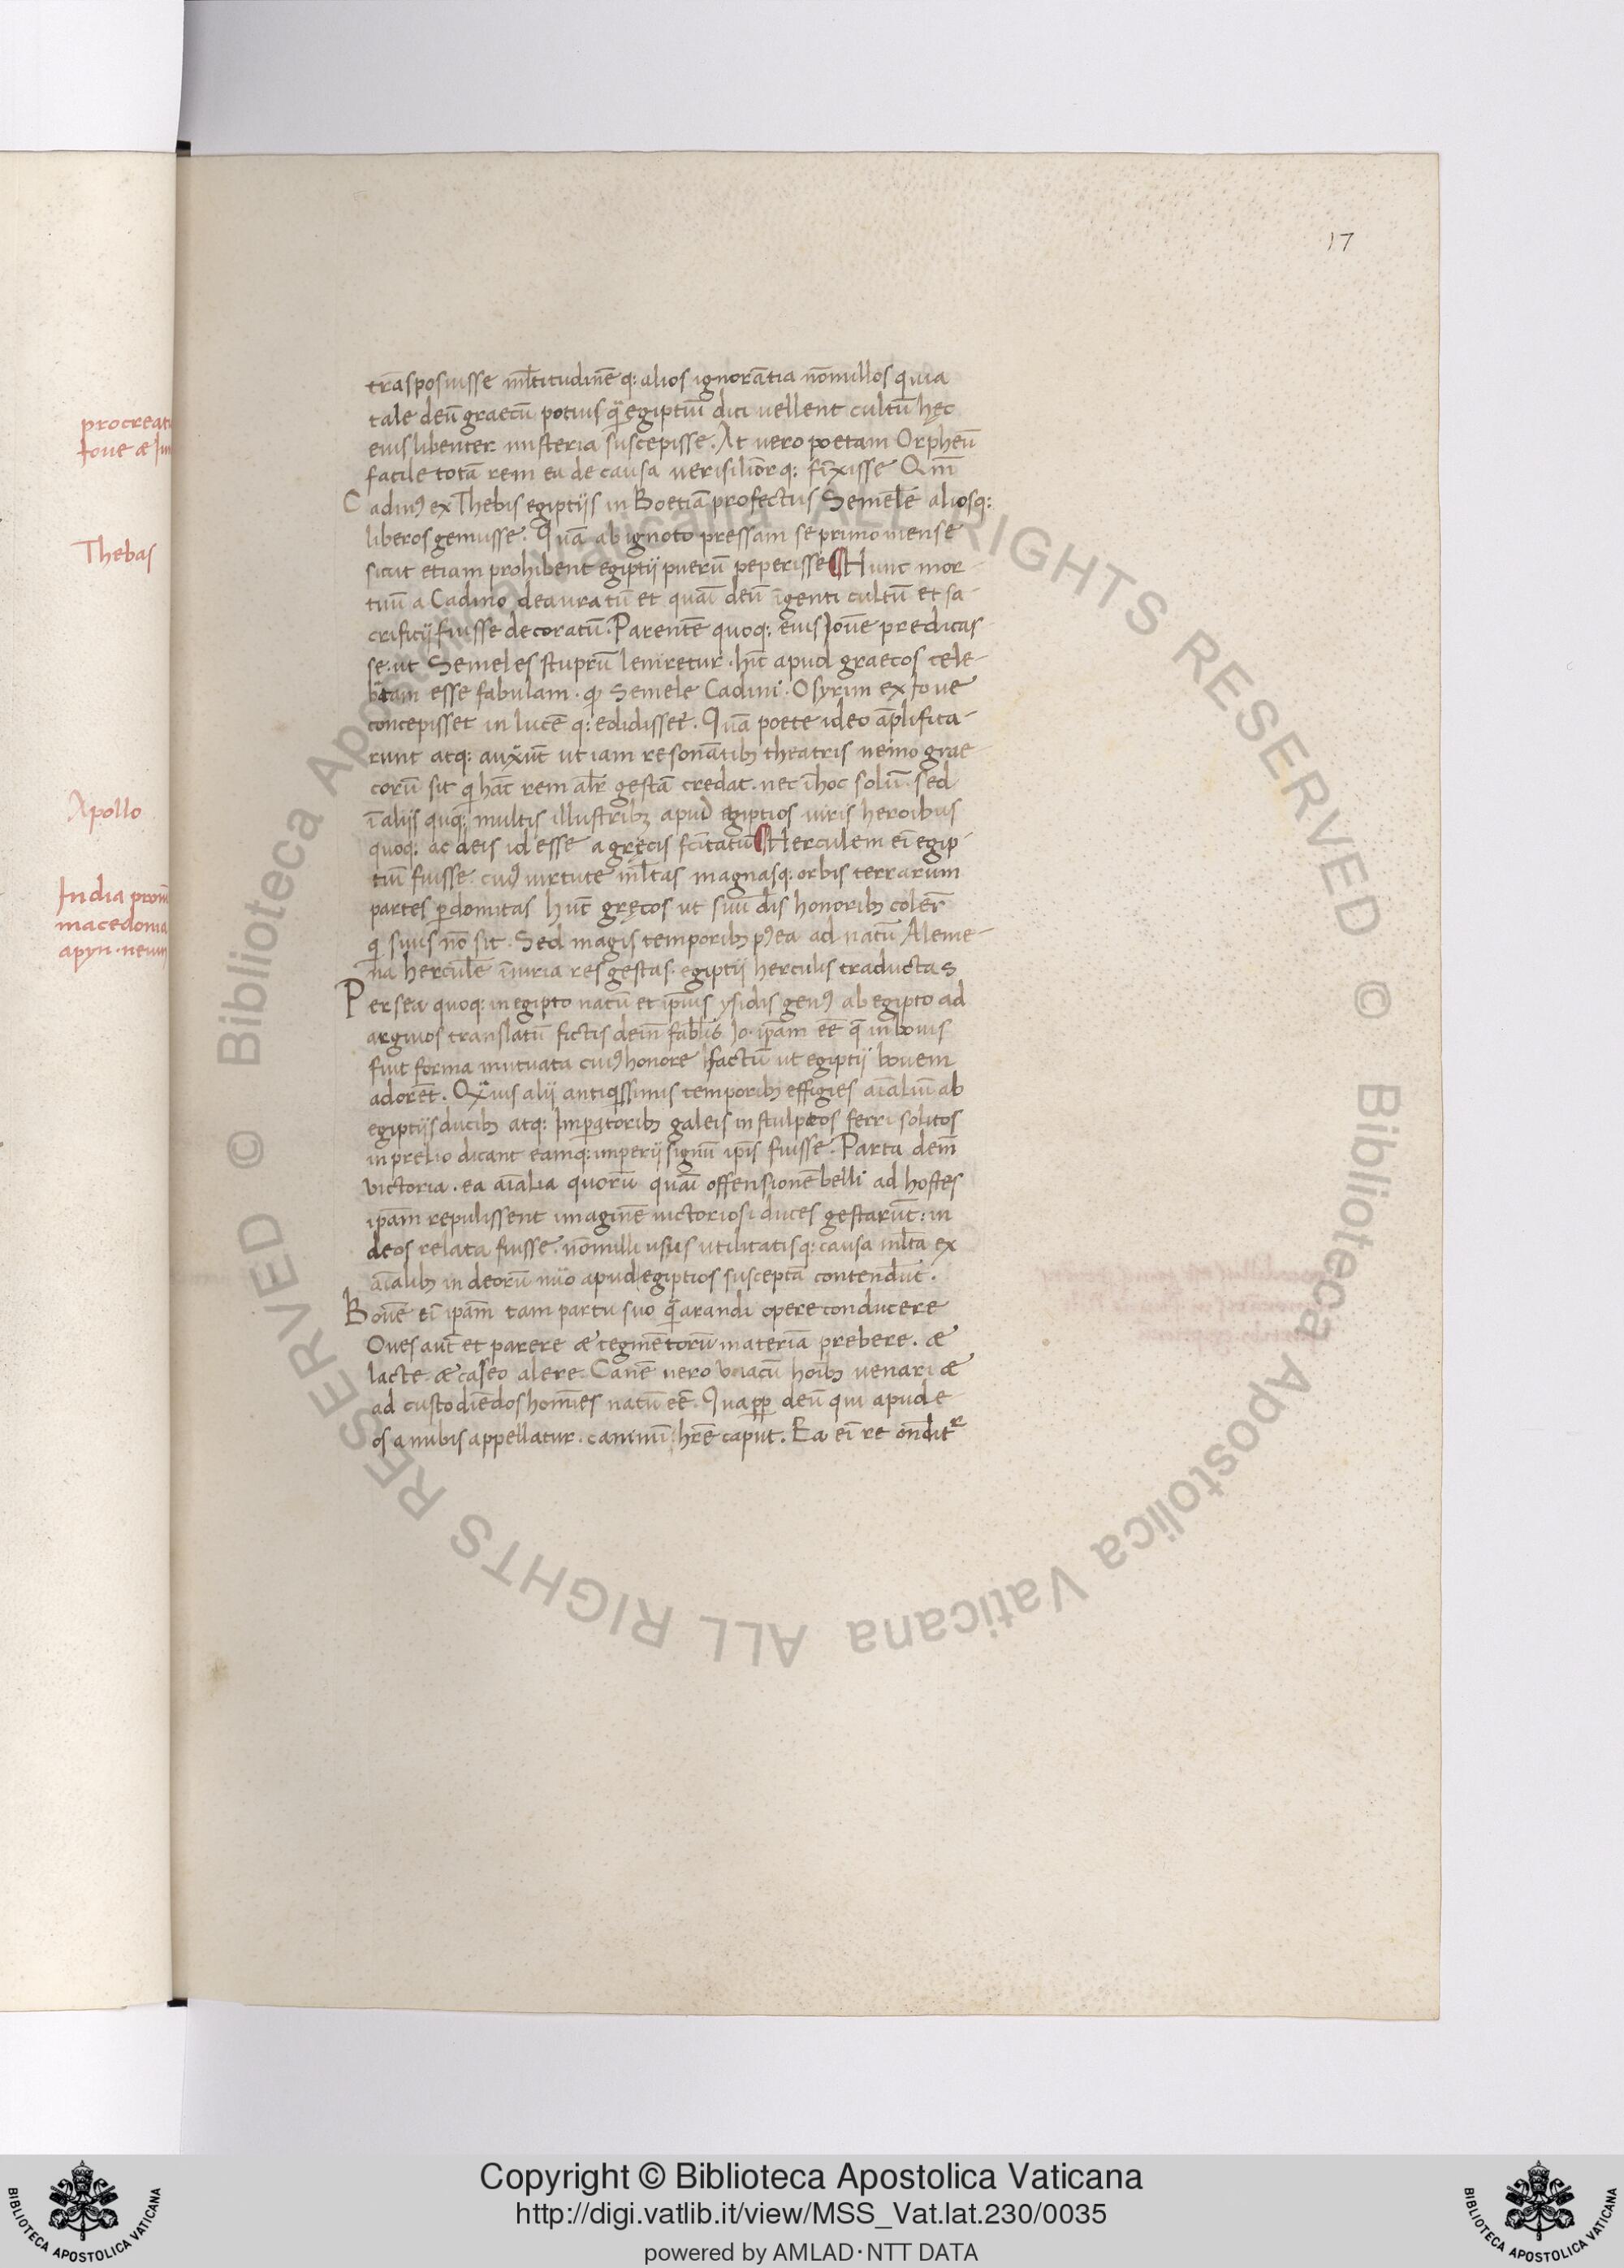 17
procreat
Ioue æ Iun
Thebas
Apollo
India prouī
macedonia
apyn . neum
trāsposuisse ml̄titudinē q: alios ignorātia nōnullos quia
tale deū graecū potius quā egiptiū dici uellent cultū hęc
eius libenter misteria suscepisse. At uero poetam Orpheū
facile totā rem ea de causa uerisiliōrq: fīxisse Qm̄
Cadmꝰ ex Thebis egiptijs in Boetiā profectus Semelē aliosq:
liberos genuisse. Quā ab ignoto pressam septimo mense
sicut etiam prohibent egiptij puerū peperisse ¶ Hunc mor
tuū a Cadmo deauratū et quāi deū īgenti cultū et sa-
crificij fuisse decoratū. Parentē quoq: eius Iouē predicas
se. ut Semeles stuprū leniretur. hīc apud graecos cele-
bratam esse fabulam. qꝫ Semele Cadmi. Osyrim ex Ioue
concepisset in lucē q: edidisset. Quā poete ideo āplifica-
runt atq: auxerūt ut iam resonātibꝫ theatris nemo grae
corū sit qi hāc rem alr̄ gestā credat. nec ī hoc solū. sed
ī alijs quoq: multis illustribꝫ apud egiptios uiris heroibus
quoq: ac deis id esse a grecis fc̄itatū ¶ Herculem eī egip-
tiū fuisse. cuiꝰ uirtute ml̄tas magnasq: orbis terrarum
partes perdomitas hūc gręcos ut suū dīs honoribꝫ colerē
qi suus nō sit. Sed magis temporibꝫ pꝰ ea ad natū Alcme-
na herculē īiuria res gestas. egiptij herculis traductas
Persea quoq: in egipto natū et ip̄ius ysidis genꝰ ab egipto ad
argiuos translatū fictis dein̄ fabl̄is Io. ip̄am eē que in bouis
fuit forma mutuata cuiꝰ honore factū ut egiptij bouem
adorēt. Quāuis alij antiquissimis temporibꝫ effigies aīaliū ab
egiptijs ducibꝫ atq: Imperatoribꝫ galeis in stulptos ferri solitos
in prelio dicant eamq: imperij signū ip̄is fuisse. Parta dem̄
victoria. ea aīalia quorū quāi offensionē belli ad hostes
ip̄am repulissent imaginē uictoriosi duces gestarūt: in
deos relata fuisse. nōnulli usus utilitatisq: causa ml̄ta ex
aīalibꝫ in deorū nūo apud egiptios susceptā contendūt.
Bouē eī ip̄am tam partu suo quā arandi opere conducere
Oues aut̄ et parere æ tegmētorū materiā prebere. æ
lacte. æ caseo alere. Canē uero vnacū hoībꝫ uenari æ
ad custodiēdos homīes natū eē. Quapp̄ deū qui apud e
os anubis appellatur. caninū hrē caput. Ea eī re ondit̄r
Copyright © Biblioteca Apostolica Vaticana
http://digi.vatlib.it/view/MSS_Vat.lat.230/0035
powered by AMLAD·NTT DATA
BIBLIOTECA APOSTOLICA VATICANA
BIBLIOTECA APOSTOLICA VATICANA
© Biblioteca Apostolica Vaticana ALL RIGHTS RESERVED © Biblioteca Apostolica Vaticana ALL RIGHTS RESERVED